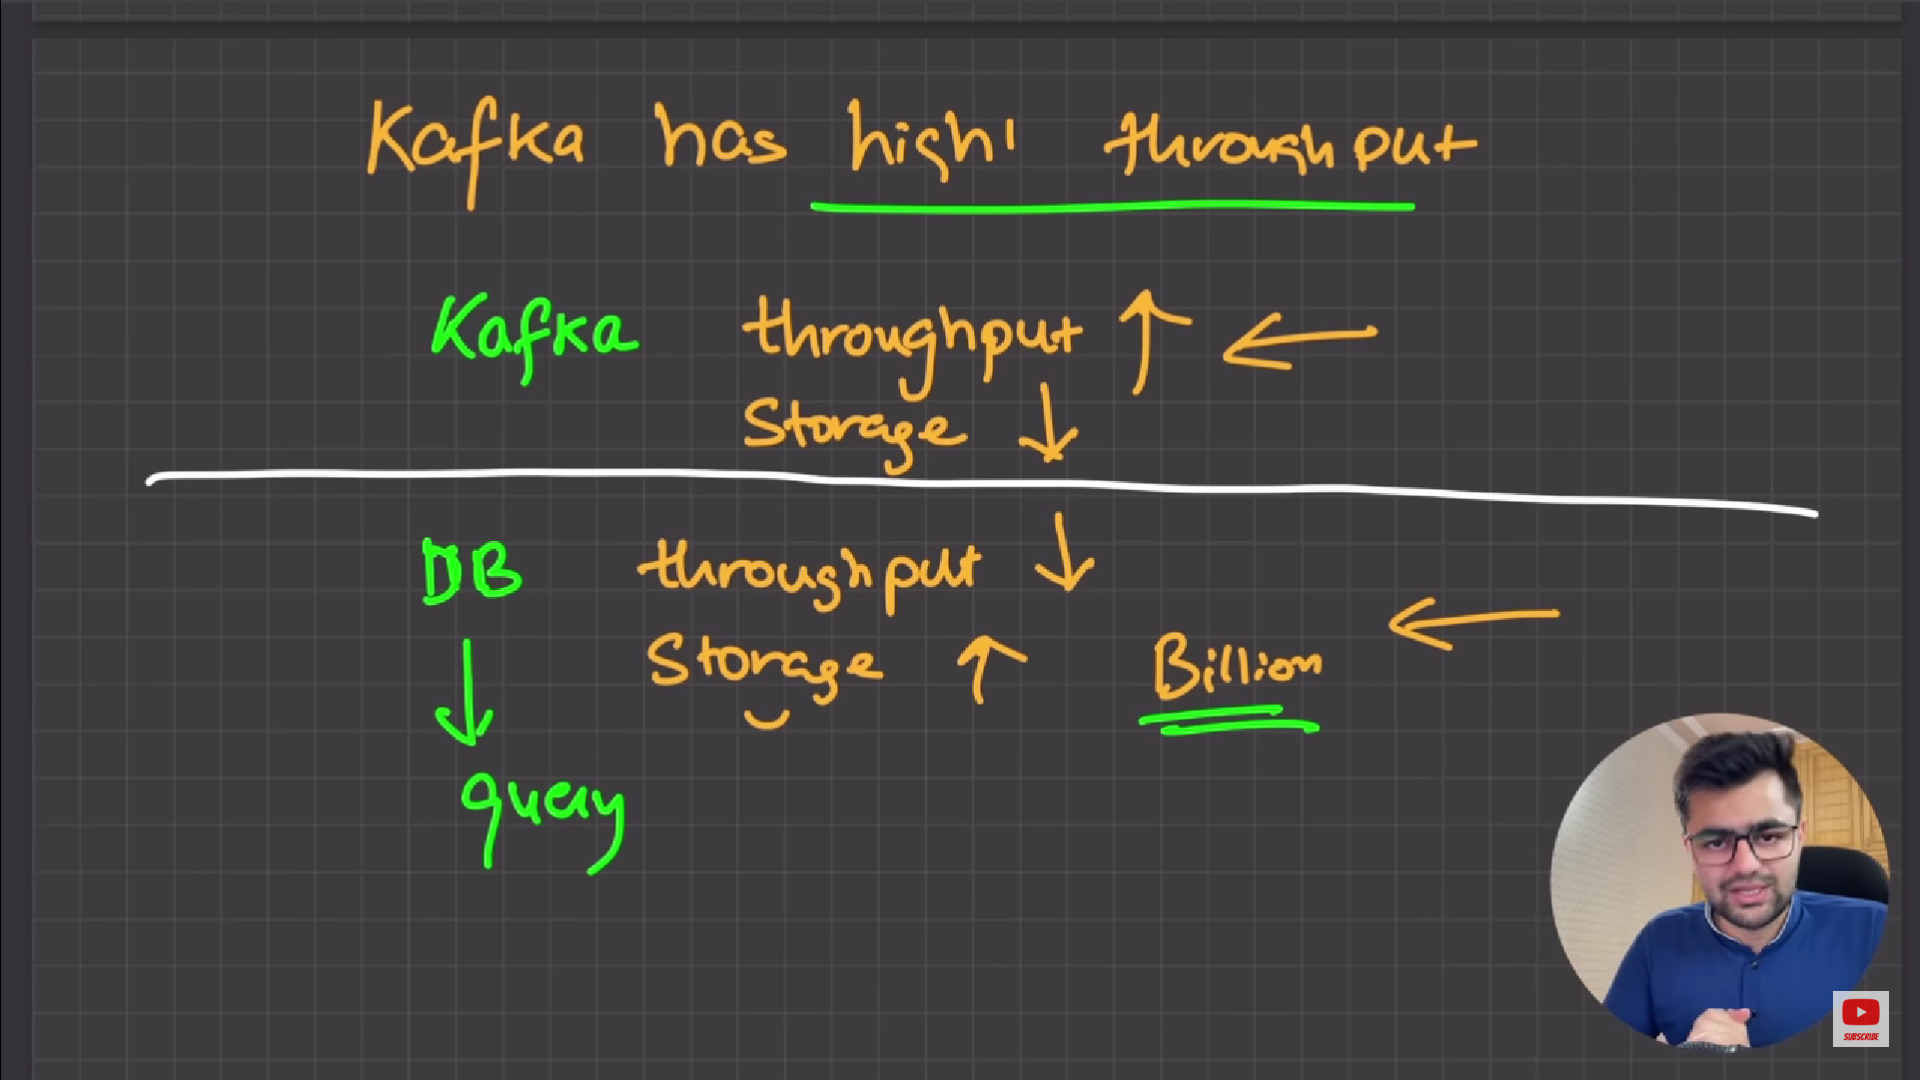 Kafka has high throughput
Kafka throughput ↑ ←
Storage ↓
DB throughput ↓
Storage ↑ Billion ←
↓
query
SUBSCRIBE